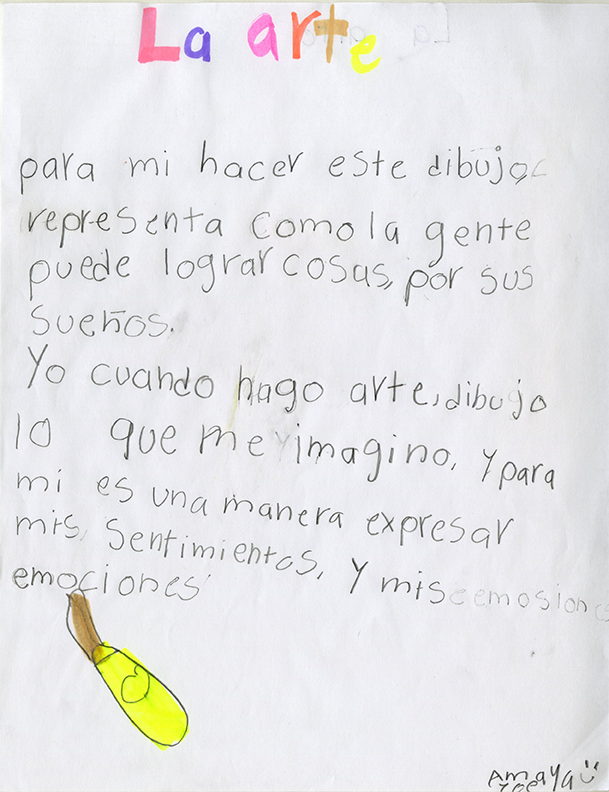 La arte
para mi hacer este dibujo,
representa como la gente
puede lograr cosas, por sus
sueños.
Yo cuando hago arte, dibujo
lo que me imagino, y para
mi es una manera expresar
mis, sentimientos, y mis emosiones
emociones
Amaya